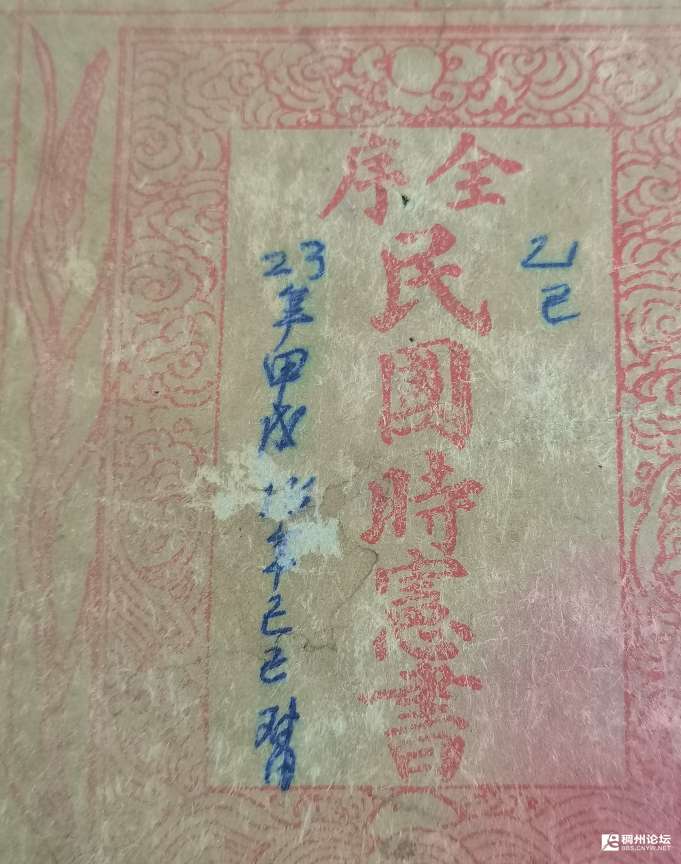 乙巳
全序
民國時憲書
23年甲戌 年己巳
稠州论坛
BBS.CNYW.NET